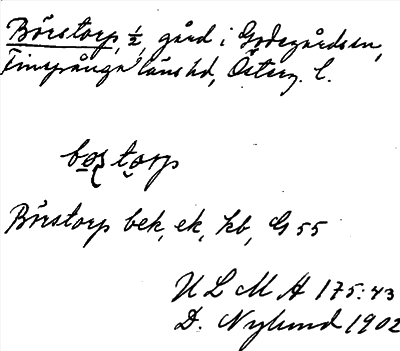 Börstorp, 1/2, gård i Godegårds sn,
Finspånga läns hd, Österg. l.
Börstorp bek, ek, kb, G 55
U L M A 175:43
D. Nylund 1902